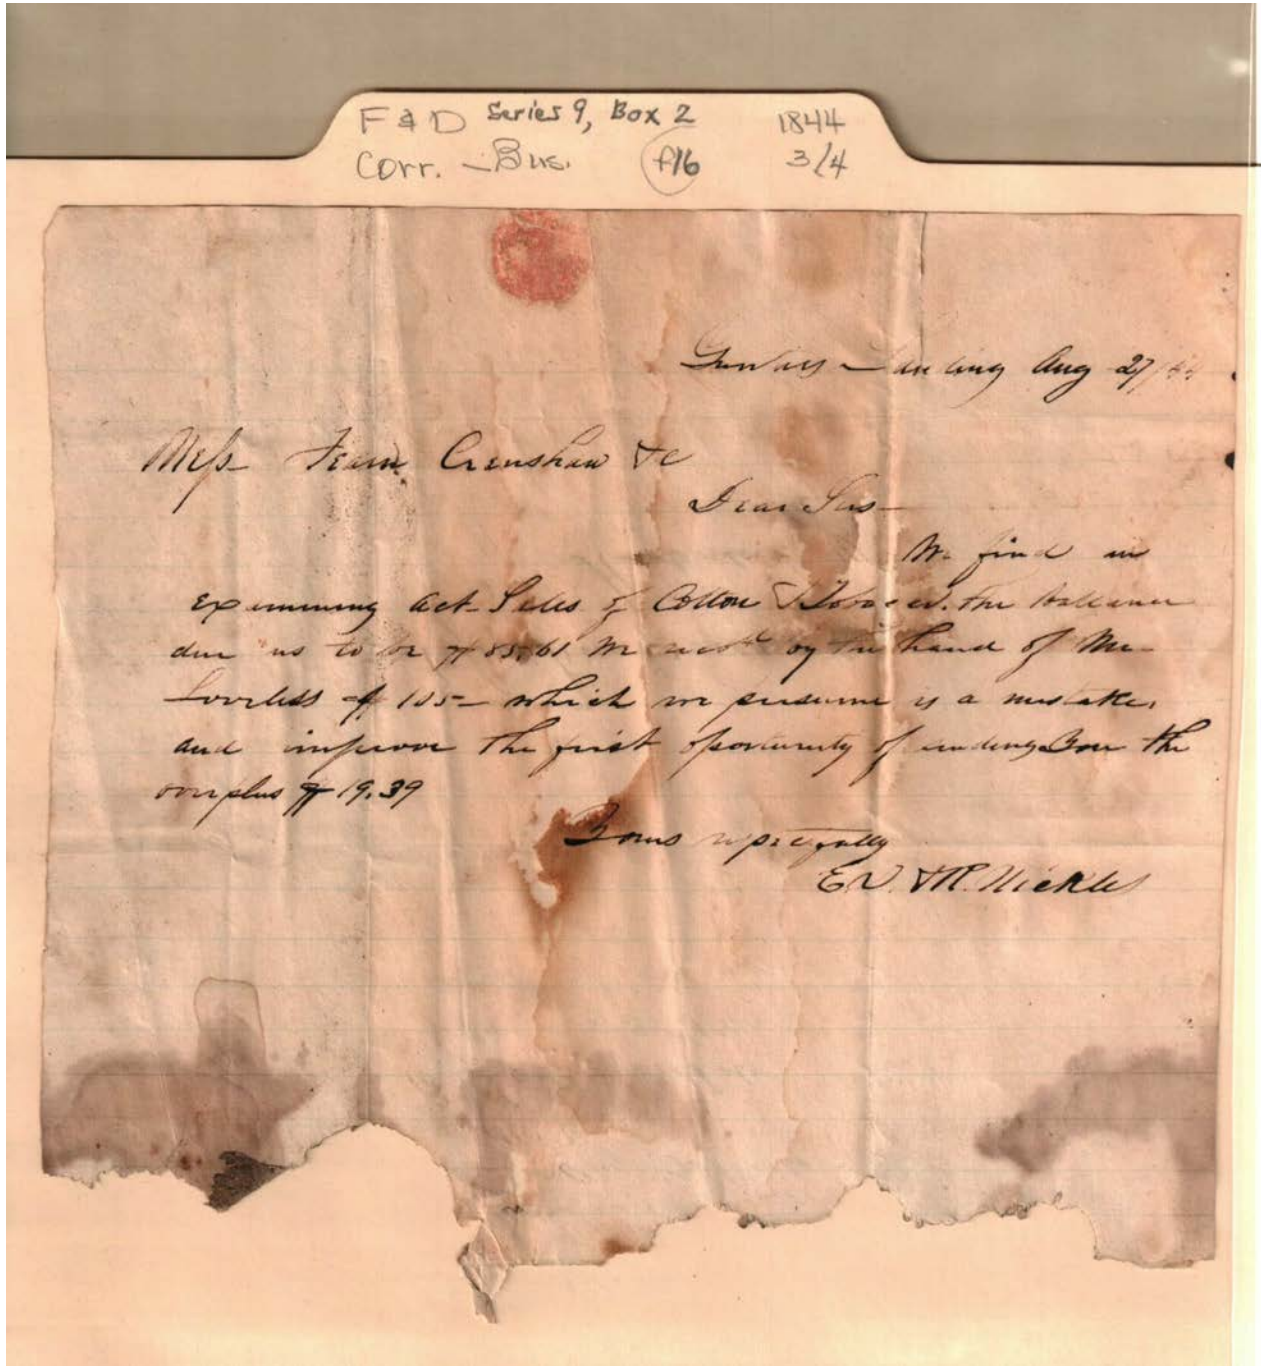 F & D Series 9, Box 2 1844
Corr. - Bus. f16 3/4
Landing Aug 27/44
Mess Fearn Crenshaw & C
Dear Sirs
We find in
Examining act Sales of Cotton & the ballance
due us to be $ 85.61 We recd by the hand of Mr
Loveless $ 105 - which we presume is a mistake
and improve the first oportunity of sending you the
overplus $ 19.39
Yours respectfully
E.D. & R. Nickles